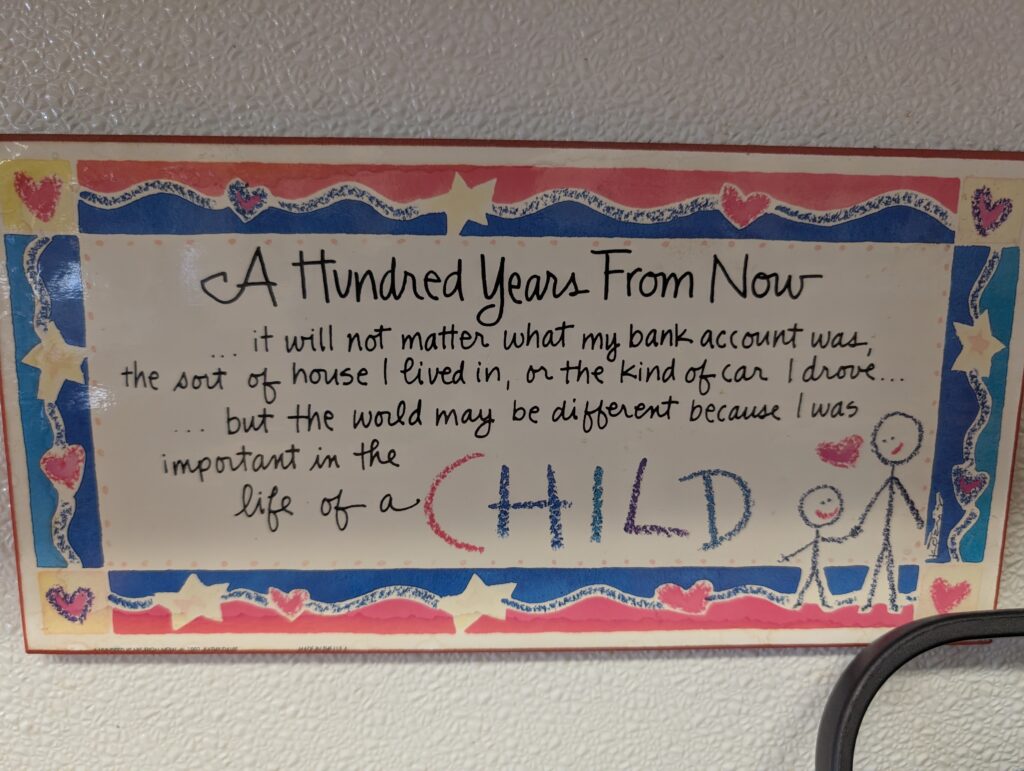 A Hundred Years From Now
... it will not matter what my bank account was,
the sort of house I lived in, or the kind of car I drove...
... but the world may be different because I was
important in the
life of a CHILD